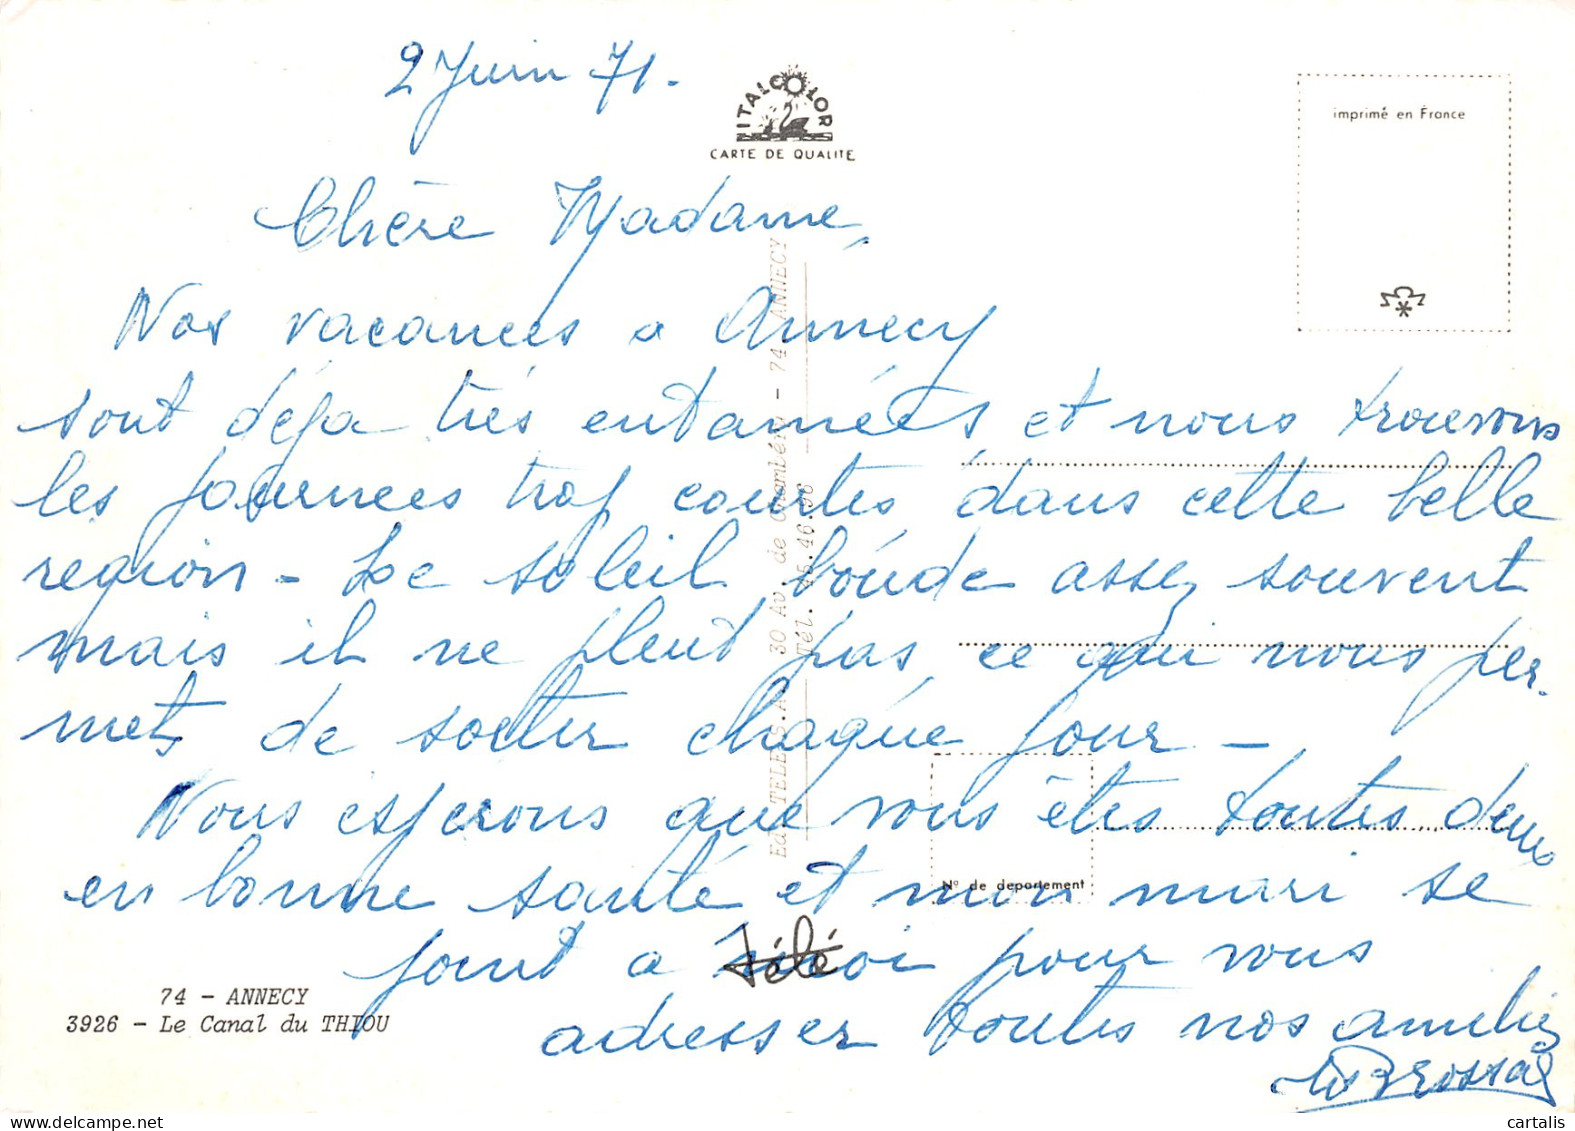 2 Juin 71.
ITALCOLOR
CARTE DE QUALITE
imprimé en France
Chère Madame,
Nos vacances a Annecy
sont déja très entamées et nous trouvons
les journees trop courtes dans cette belle
region - Le soleil boude assez souvent
mais il ne pleut pas ce qui nous per-
mets de sortir chaque jour -
Nous esperons que vous êtes toutes deux
en bonne santé et mon mari se
joint a moi pour vous
adresser toutes nos amitiés
Brossard
Ed. TELE S.A. 30 Av. de Chambéry - 74 ANNECY
Tél. 45.46.08
N° de departement
télé
74 - ANNECY
3926 - Le Canal du THIOU
cartalis